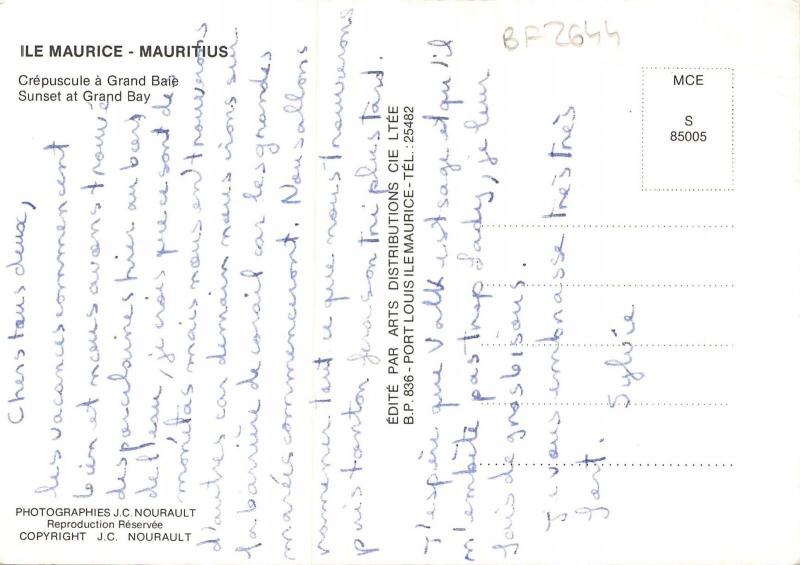 ILE MAURICE - MAURITIUS
Crépuscule à Grand Baie
Sunset at Grand Bay
BF2644
MCE
S
85005
Chers tous deux,
les vacances commencent
bien et nous avons trouvé
des porcelaines hier au bord
de l'eau, je crois que ce sont de
monétas mais nous en trouverons
d'autres car demain nous irons sur
la barrière de corail car les grandes
marées commenceront. Nous allons
ramener tout ce que nous trouverons
puis tonton fera son tri plus tard.
ÉDITÉ PAR ARTS DISTRIBUTIONS CIE LTÉE
B.P. 836 - PORT LOUIS ILE MAURICE - TÉL.: 25482
J'espère que est sage et qu'il
n'embête pas trop Lady, je leur
fais de gros bisous.
Je vous embrasse très très
fort. Sylvie
PHOTOGRAPHIES J.C. NOURAULT
Reproduction Réservée
COPYRIGHT J.C. NOURAULT